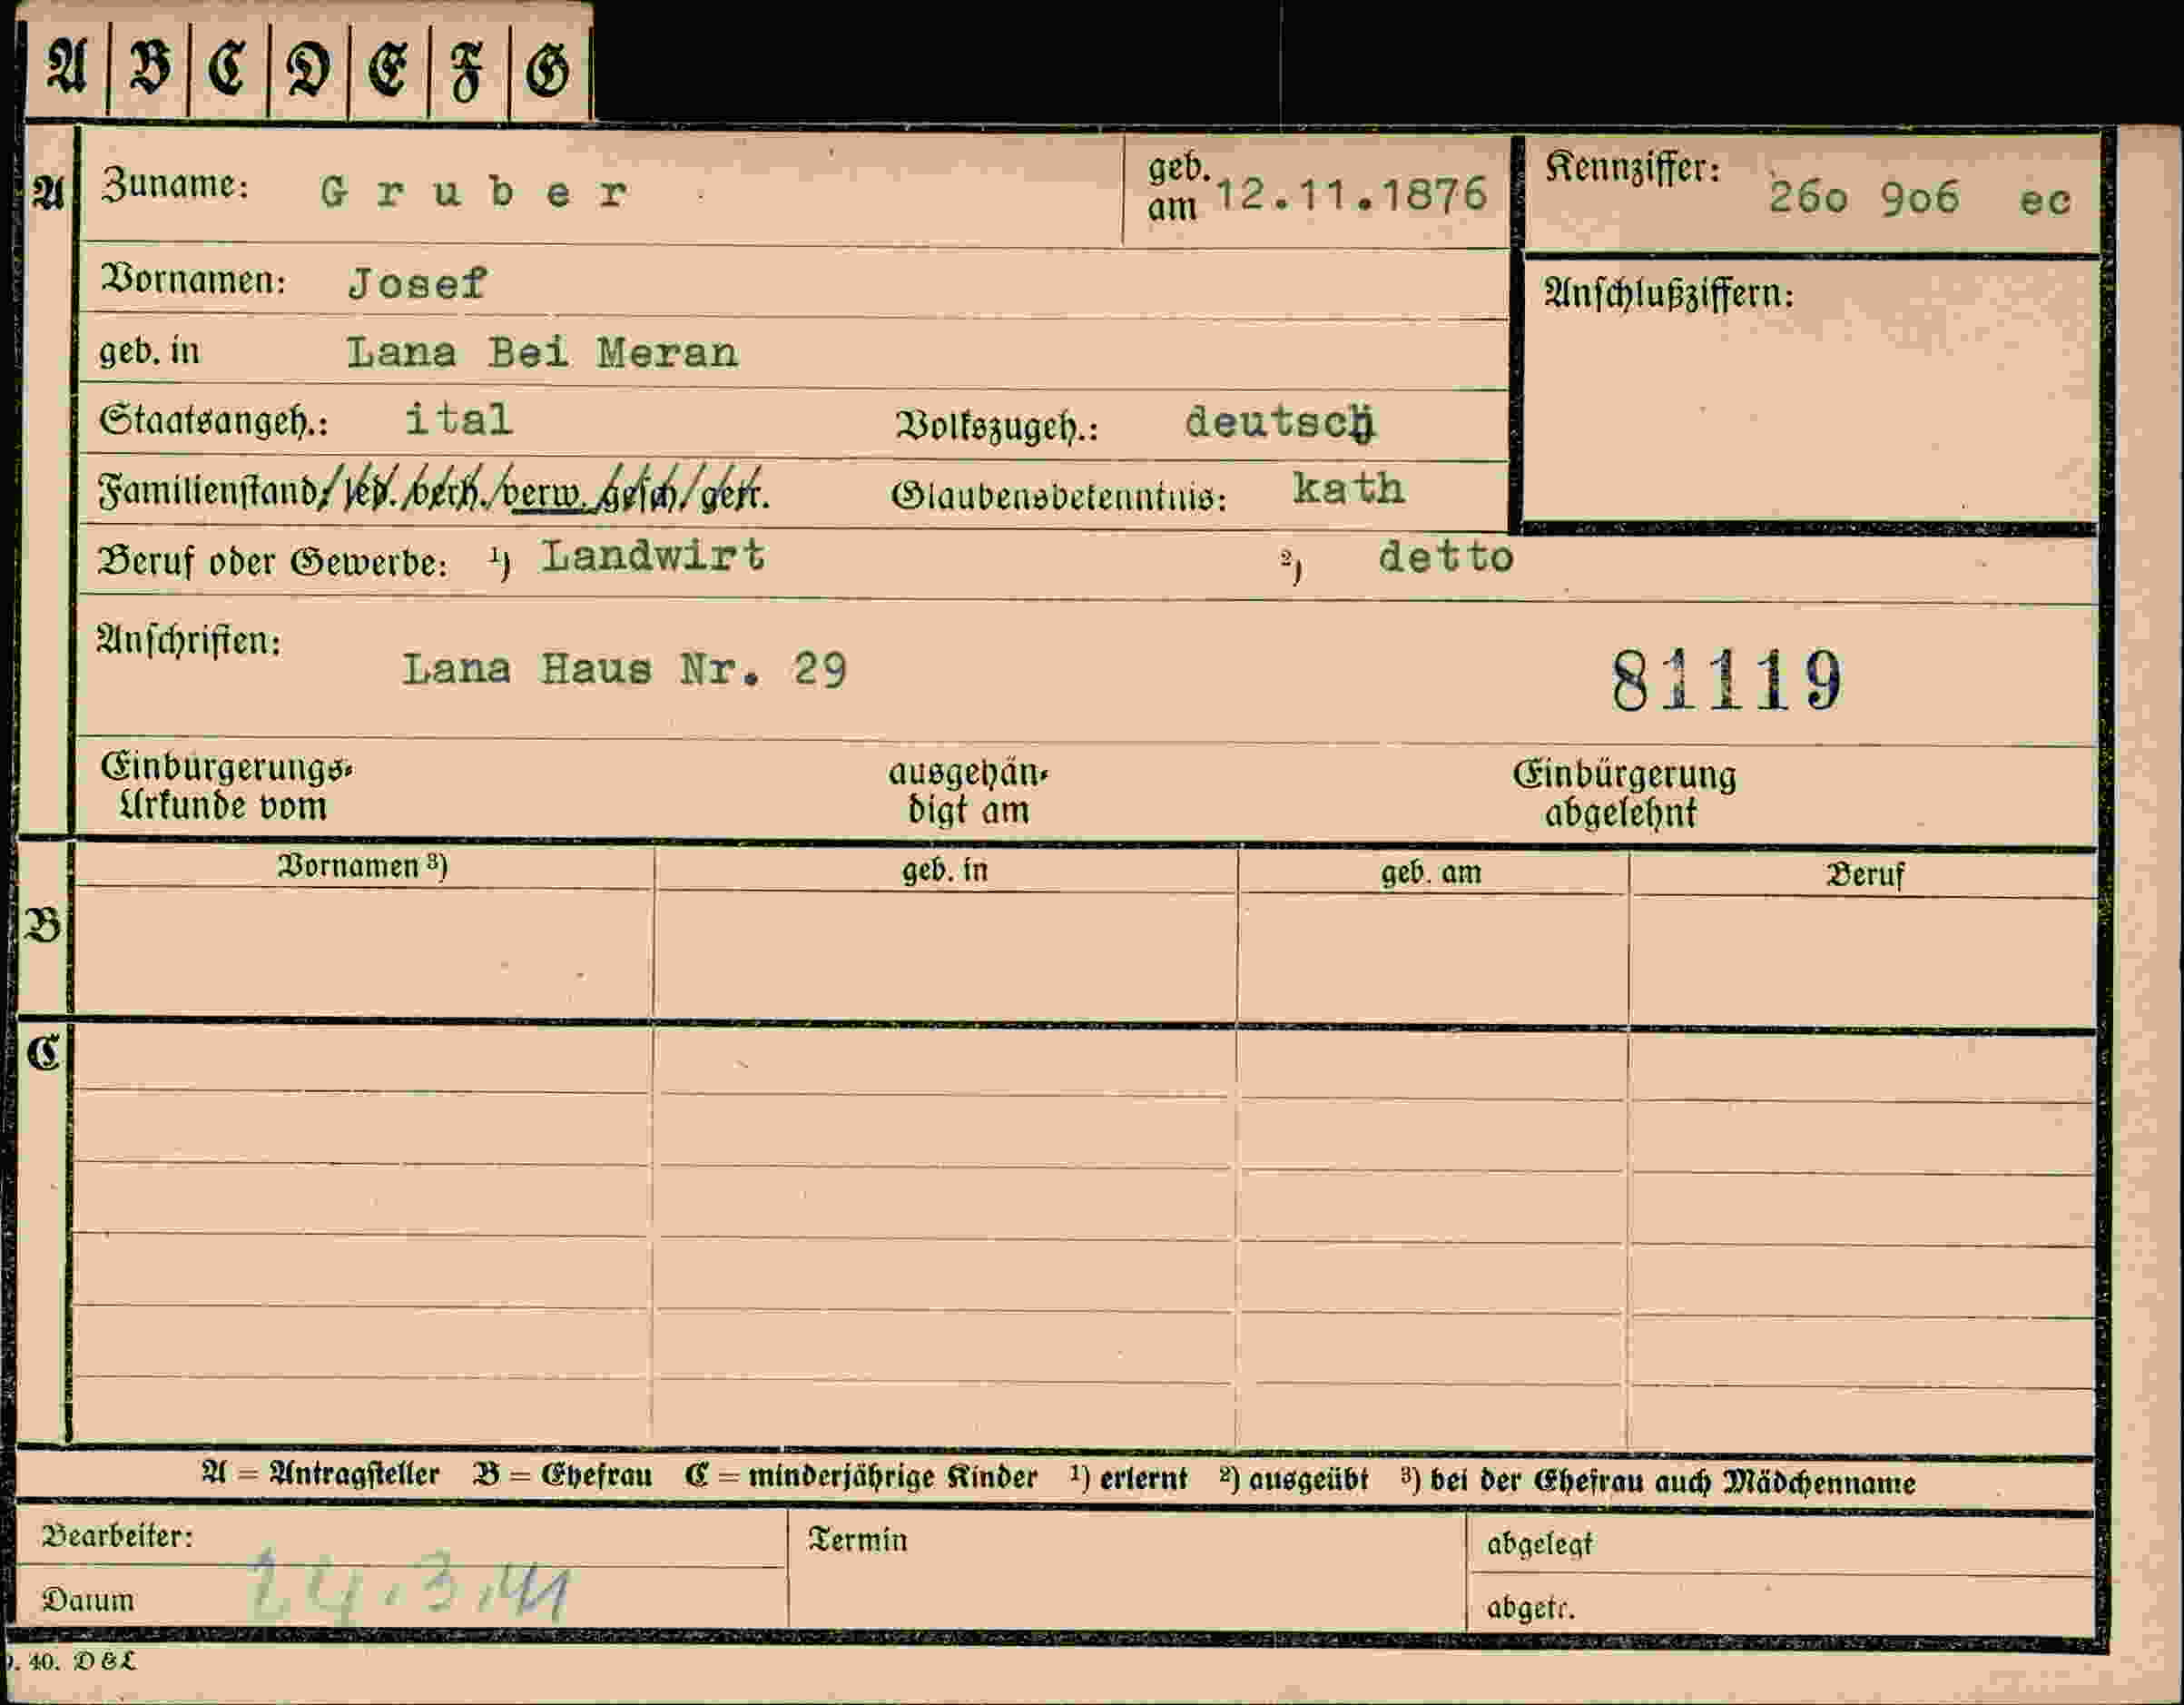 A B C D E F G
A Zuname: Gruber geb. am 12.11.1876 Kennziffer: 26o 9o6 ec
Vornamen: Josef Anschlußziffern:
geb. in Lana Bei Meran
Staatsangeh.: ital Volkszugeh.: deutsch
Familienstand: led./verh./verw./gesch./getr. Glaubensbekenntnis: kath
Beruf oder Gewerbe: ¹) Landwirt ²) detto
Anschriften: Lana Haus Nr. 29 81119
Einbürgerungs- ausgehän- Einbürgerung
Urkunde vom digt am abgelehnt
Vornamen ³) geb. in geb. am Beruf
B
C
A = Antragsteller B = Ehefrau C = minderjährige Kinder ¹) erlernt ²) ausgeübt ³) bei der Ehefrau auch Mädchenname
Bearbeiter: Termin abgelegt
Datum 24.3.41 abgetr.
40. D&L